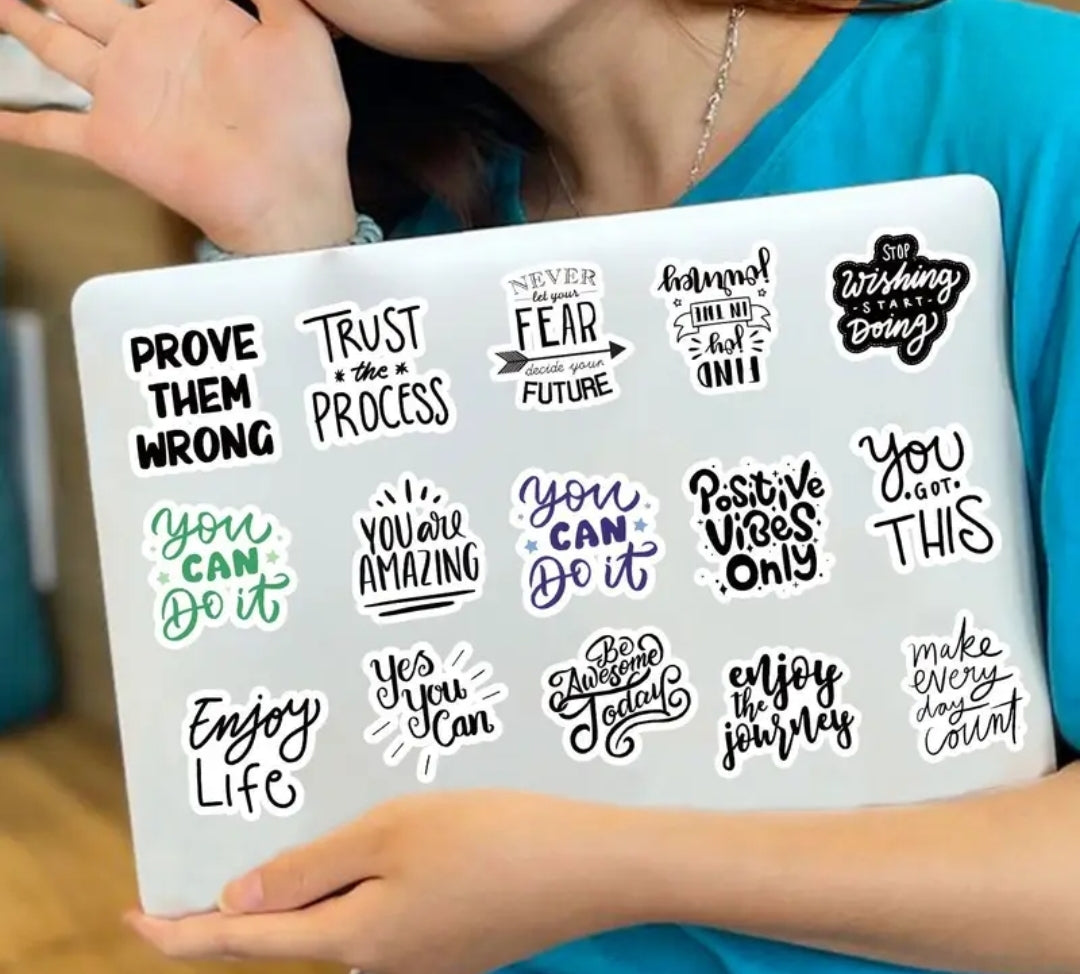 PROVE
THEM
WRONG
TRUST
the
PROCESS
NEVER
let your
FEAR
decide your
FUTURE
FIND
joy
IN THE
journey!
STOP
Wishing
-START-
Doing
You
CAN
Do it
YOU are
AMAZING
You
CAN
Do it
Positive
ViBES
Only
You
.GOT.
THIS
Enjoy
Life
Yes
You
Can
Be
Awesome
Today
enjoy
the
journey
make
every
day
count